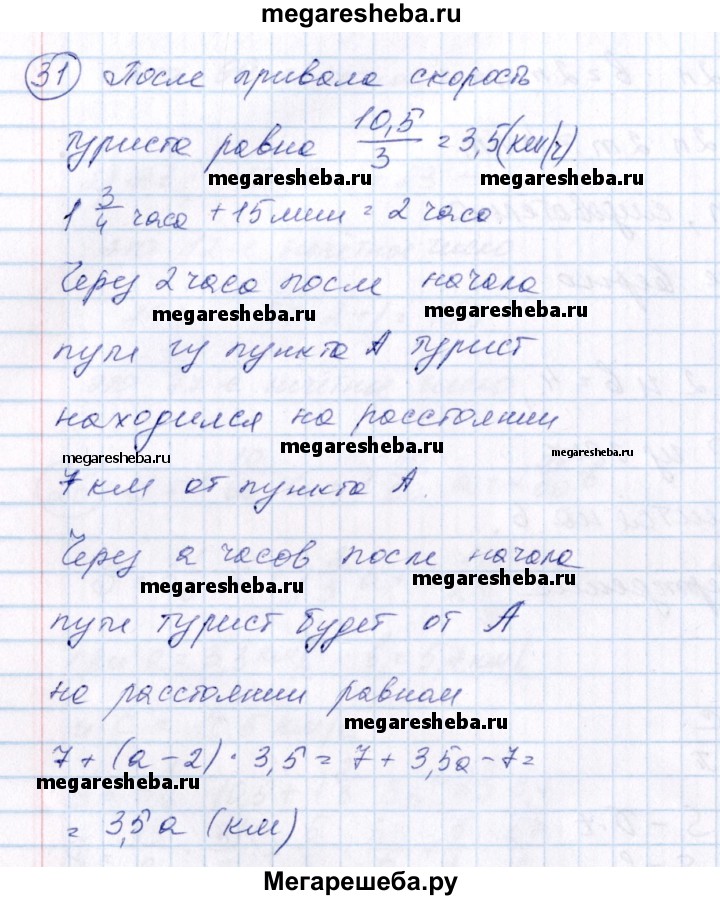 megaresheba.ru
31 После привала скорость
туриста равна 10,5/3 = 3,5 (км/ч).
megaresheba.ru megaresheba.ru
1 3/4 часа + 15 мин = 2 часа
Через 2 часа после начала
megaresheba.ru megaresheba.ru
пути из пункта А турист
находился на расстоянии
megaresheba.ru megaresheba.ru megaresheba.ru
7 км от пункта А.
Через a часов после начала
megaresheba.ru megaresheba.ru
пути турист будет от А
на расстоянии равном
megaresheba.ru
7 + (a - 2) · 3,5 = 7 + 3,5a - 7 =
megaresheba.ru
= 3,5 a (км)
Мегарешеба.ру